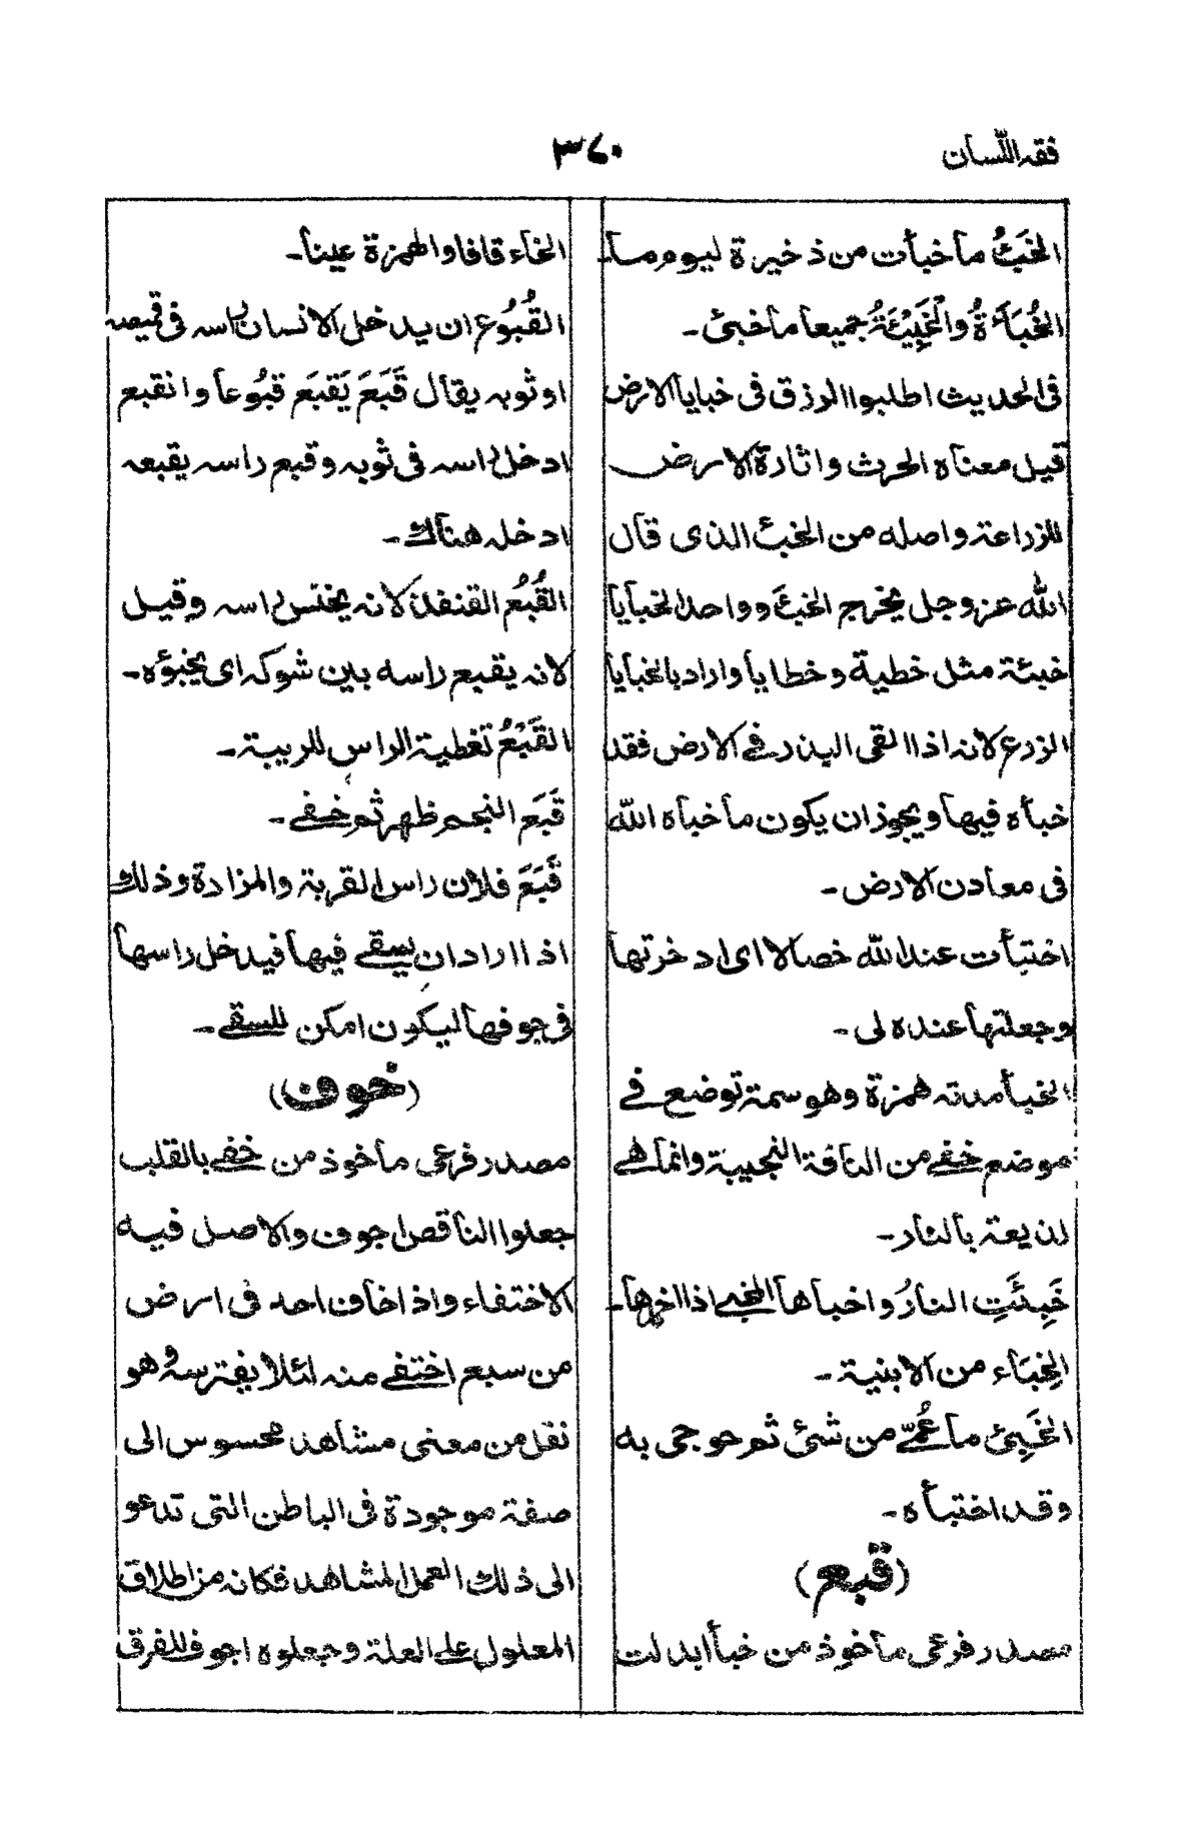 فقہ اللسان
٣٦٠
الخَبْءُ ما خبأت من ذخيرة ليوم ما۔
الخُبَأَةُ والخَبِيْئَةُ جميعا ما خبئ۔
فى الحديث اطلبوا الرزق فى خبايا الارض
قيل معناه الحرث واثارة الارض
للزراعة واصله من الخبء الذى قال
الله عز وجل يخرج الخبءَ وواحد الخبايا
خبئة مثل خطية وخطايا واراد بالخبايا
الزرع لانه اذا القى البذر فے الارض فقد
خبأه فيها ويجوز ان يكون ما خباه الله
فى معادن الارض۔
اختبأت عند الله خصالا اى ادخرتها
وجعلتها عنده لى۔
الخبأ مدته همزة وهو سمة توضع فے
موضع خفے من الناقة النجيبة وانما هے
لذيعة بالنار۔
خَبِئَتِ النارُ واخباها المخبے اذا اخمدها۔
الخِبَاء من الابنية۔
الخَبِئ ما عُمّے من شئ ثم حوجى به
وقد اختبأه۔
(قبع)
مصدر فرعى ماخوذ من خبأ ابدلت
الخاء قافا والهمزة عينا۔
القُبُوع ان يدخل الانسان راسه فى قميصه
او ثوبه يقال قَبَعَ يَقبَع قبُوعا وانقبع
ادخل راسه فى ثوبه وقبع راسه يقبعه
ادخله هناك۔
القُبُع القنفذ لانه يخنس راسه وقيل
لانه يقبع راسه بين شوكه اى يخبؤه۔
القَبْعُ تغطية الراس للريبة۔
قَبَع النجم ظهر ثم خفے۔
قَبَعَ فلان راس القربة والمزادة وذلك
اذا اراد ان يسقے فيها فيدخل راسها
فى جوفها ليكون امكن للسقے۔
(خوف)
مصدر فرعى ماخوذ من خفے بالقلب
جعلوا الناقص اجوف والاصل فيه
الاختفاء واذا خاف احد فى ارض
من سبع اختفے منه لئلا يفترسه وهو
نقل من معنى مشاهد محسوس الى
صفة موجودة فى الباطن التى تدعو
الى ذلك العمل المشاهد فكانه من اطلاق
المعلول على العلة وجعلوه اجوف للفرق